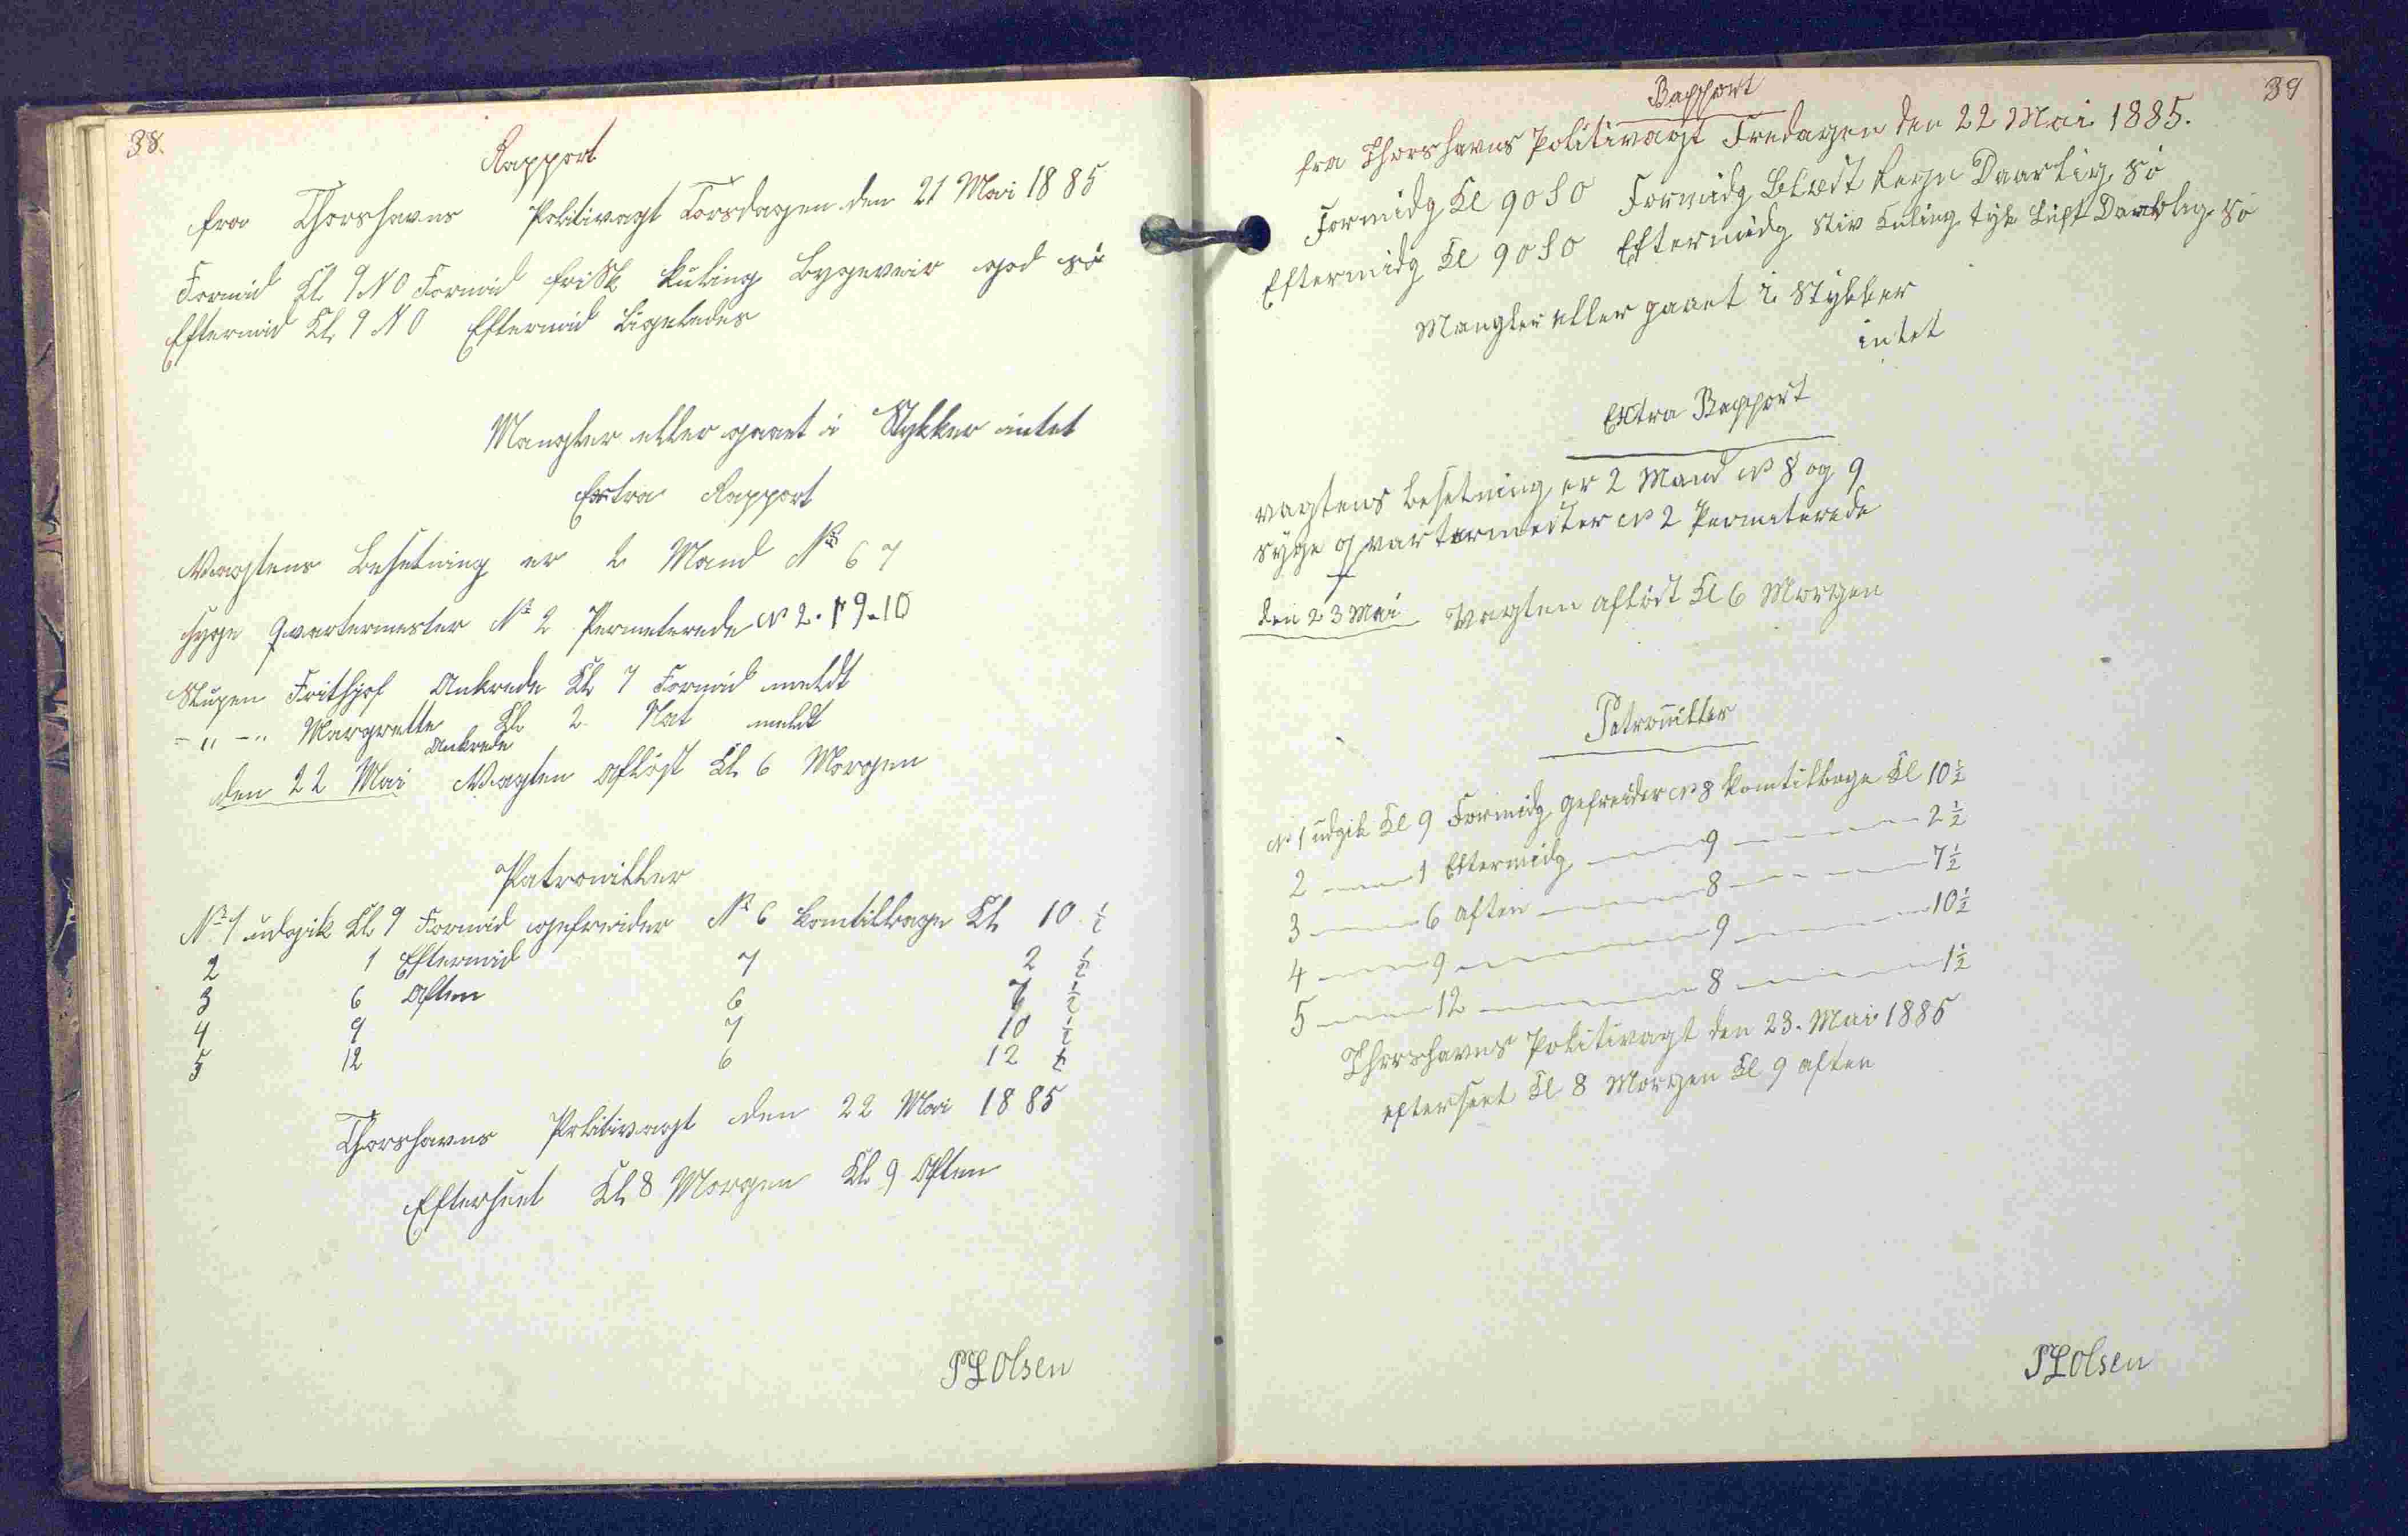 38.
Rapport
fra Thorshavns Politivagt Torsdagen den 21 Mai 1885
Formid Kl. 9 NO Formid frisk Kuling Bygeveir god sö
Eftermid Kl. 9 NO Eftermid Ligeledes
Mangler eller gaaet i Stykker intet
Extra Rapport
Vagtens Besetning er 2 Mand No 6 7
syge Qvartermester No 2 Permeterede No 2. 9-10
Slupen Frithjof Ankrede Kl 7 Formid meldt
-"-" Margrette Ankrede Kl. 2 Nat meldt
den 22 Mai Vagten Afløst Kl. 6 Morgen
Patrouiller
No 1 udgik Kl. 9 Formid gefreider No 6 komtilbage Kl. 10 ½
2 1 Eftermid 7 2 ½
3 6 Aften 6 7 ½
4 9 7 10 ½
5 12 6 12 ½
Thorshavns Politivagt den 22 Mai 1885
Efterseet Kl. 8 Morgen Kl. 9 Aften
PL Olsen
39
Rapport
fra Thorshavns Politivagt Fredagen den 22 Mai 1885.
Formidg Kl 9 OSO Formidg Blæst Regn Daarlig sö
Eftermidg Kl 9 OSO Eftermidg Stiv Kuling tyk Luft Daarlig sö
Mangler eller gaaet i Stykker
intet
Extra Rapport
vagtens besetning er 2 Mand No 8 og 9
syge qvartermester No 2 Permiterede
den 23 Mai Vagten afløst Kl 6 Morgen
Patrouiller
No 1 udgik Kl 9 Formidg gefreider No 8 komtilbage Kl 10½
2 — 1 Eftermidg — 9 — 2½
3 — 6 aften — 8 — 7½
4 — 9 — 9 — 10½
5 — 12 — 8 — 1½
Thorshavns Politivagt den 23. Mai 1885
efterseet Kl 8 Morgen Kl 9 aften
PL Olsen